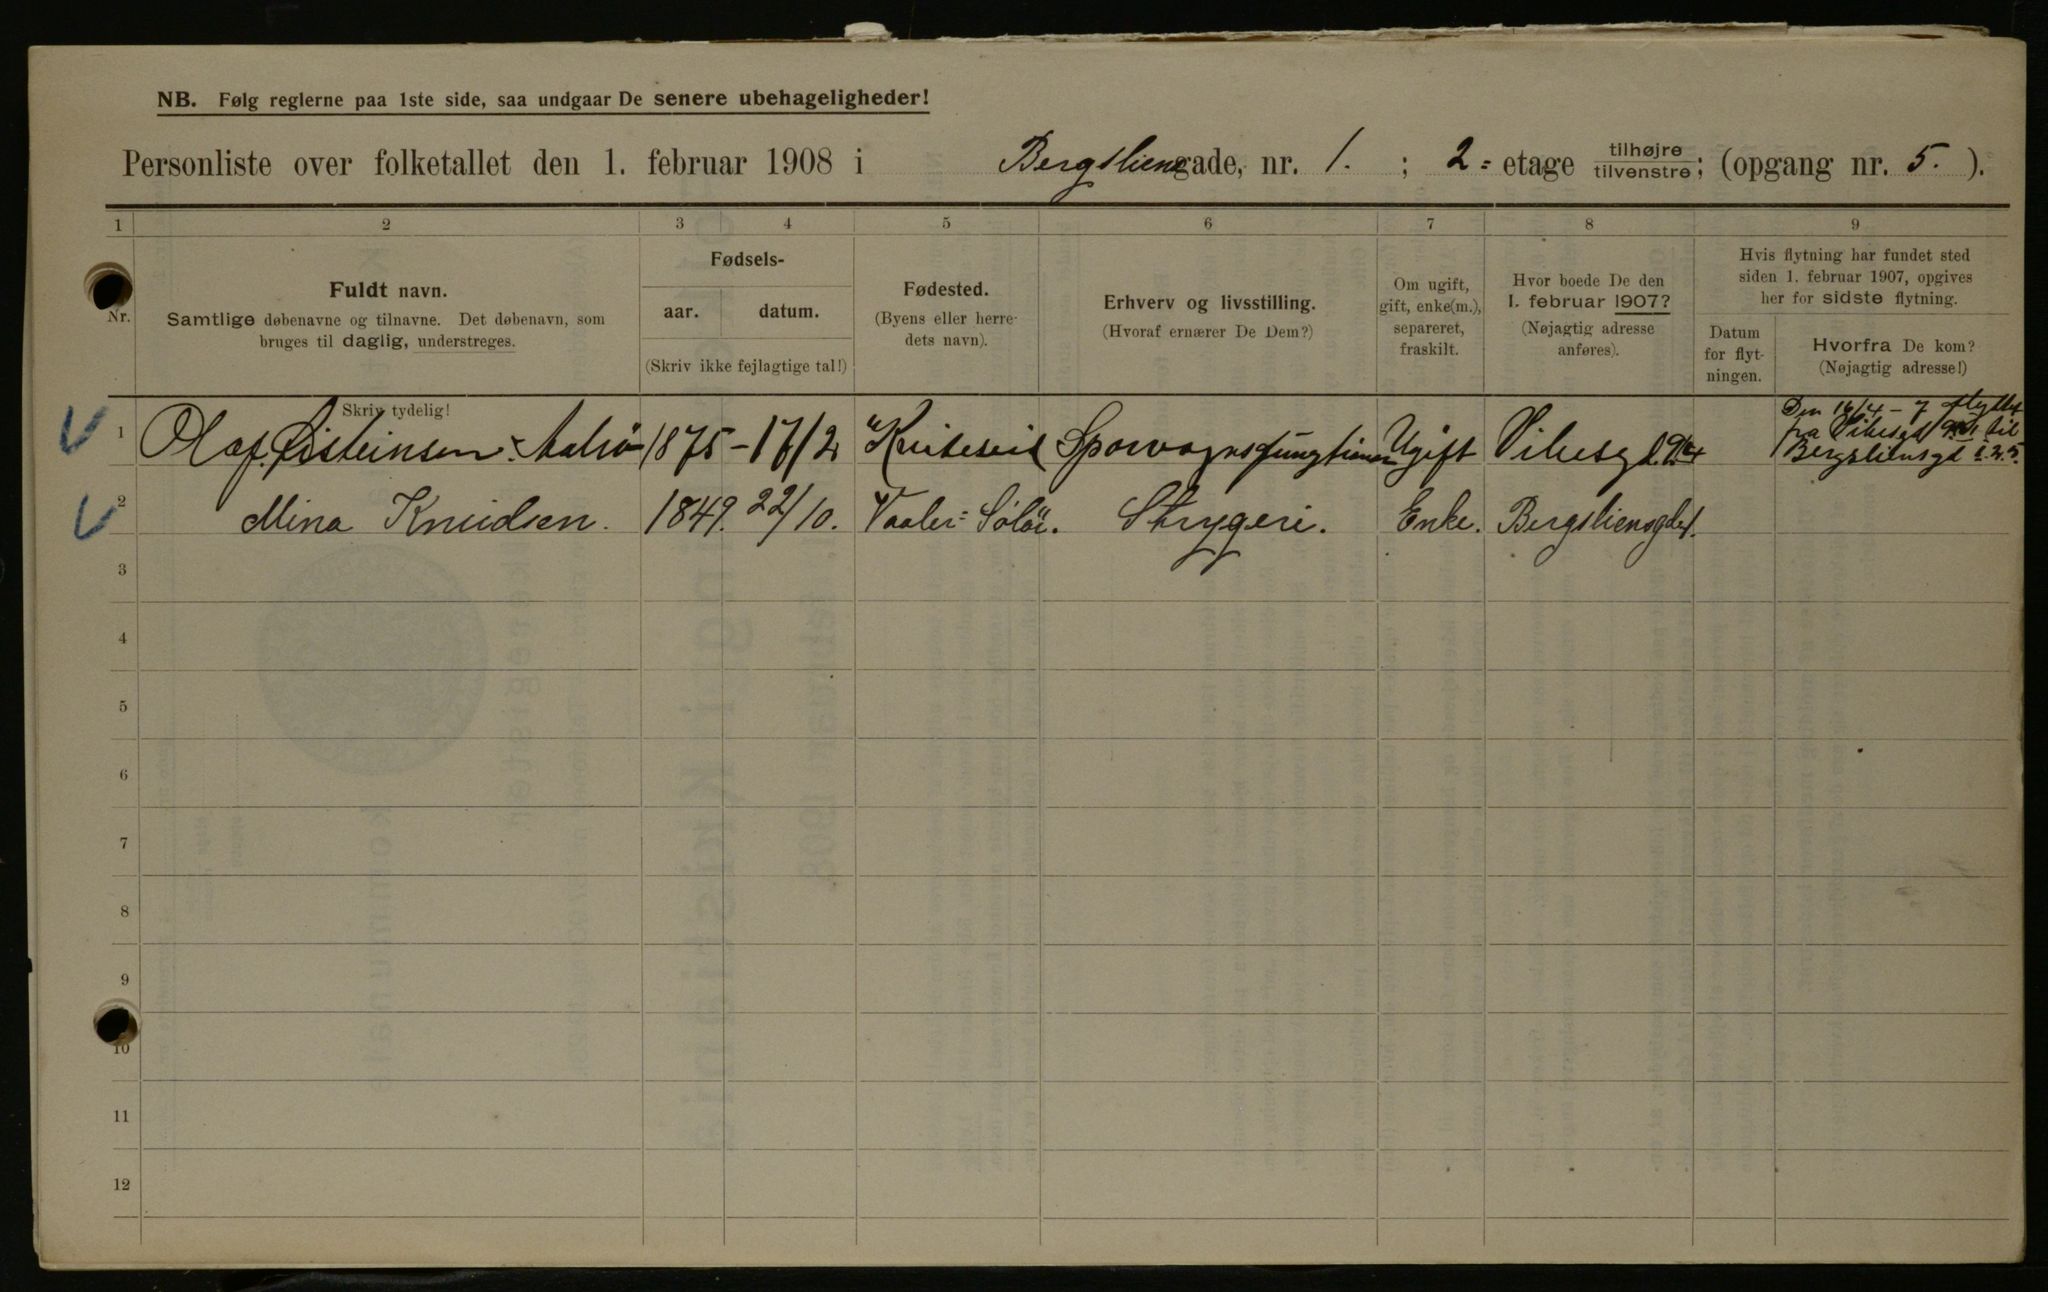 NB. Følg reglerne paa 1ste side, saa undgaar De senere ubehageligheder!
Personliste over folketallet den 1. februar 1908 i Bergsliensgade, nr. 1. ; 2 = etage tilhøjre tilvenstre; (opgang nr. 5. ).
1 2 3 4 5 6 7 8 9
Nr.
Fuldt navn.
Samtlige døbenavne og tilnavne. Det døbenavn, som
bruges til daglig, understreges.
Skriv tydelig!
Fødsels-
aar. datum.
(Skriv ikke fejlagtige tal!)
Fødested.
(Byens eller herre-
dets navn).
Erhverv og livsstilling.
(Hvoraf ernærer De Dem?)
Om ugift,
gift, enke(m.),
separeret,
fraskilt.
Hvor boede De den
1. februar 1907?
(Nøjagtig adresse
anføres).
Hvis flytning har fundet sted
siden 1. februar 1907, opgives
her for sidste flytning.
Datum
for flyt-
ningen.
Hvorfra De kom?
(Nøjagtig adresse!)
1 Olaf Øisteinsen 1875 - 17/2 Kviteseid Ugift Vibesgd.
Den 16/4 - 7 flyttet
fra Vibesgd til
Bergsliensgd 1. 2. 5.
2 Mina Knudsen. 1849. 22/10. Vaaler = Solør. Strygeri. Enke. Bergsliensgd 1.
3
4
5
6
7
8
9
10
11
12